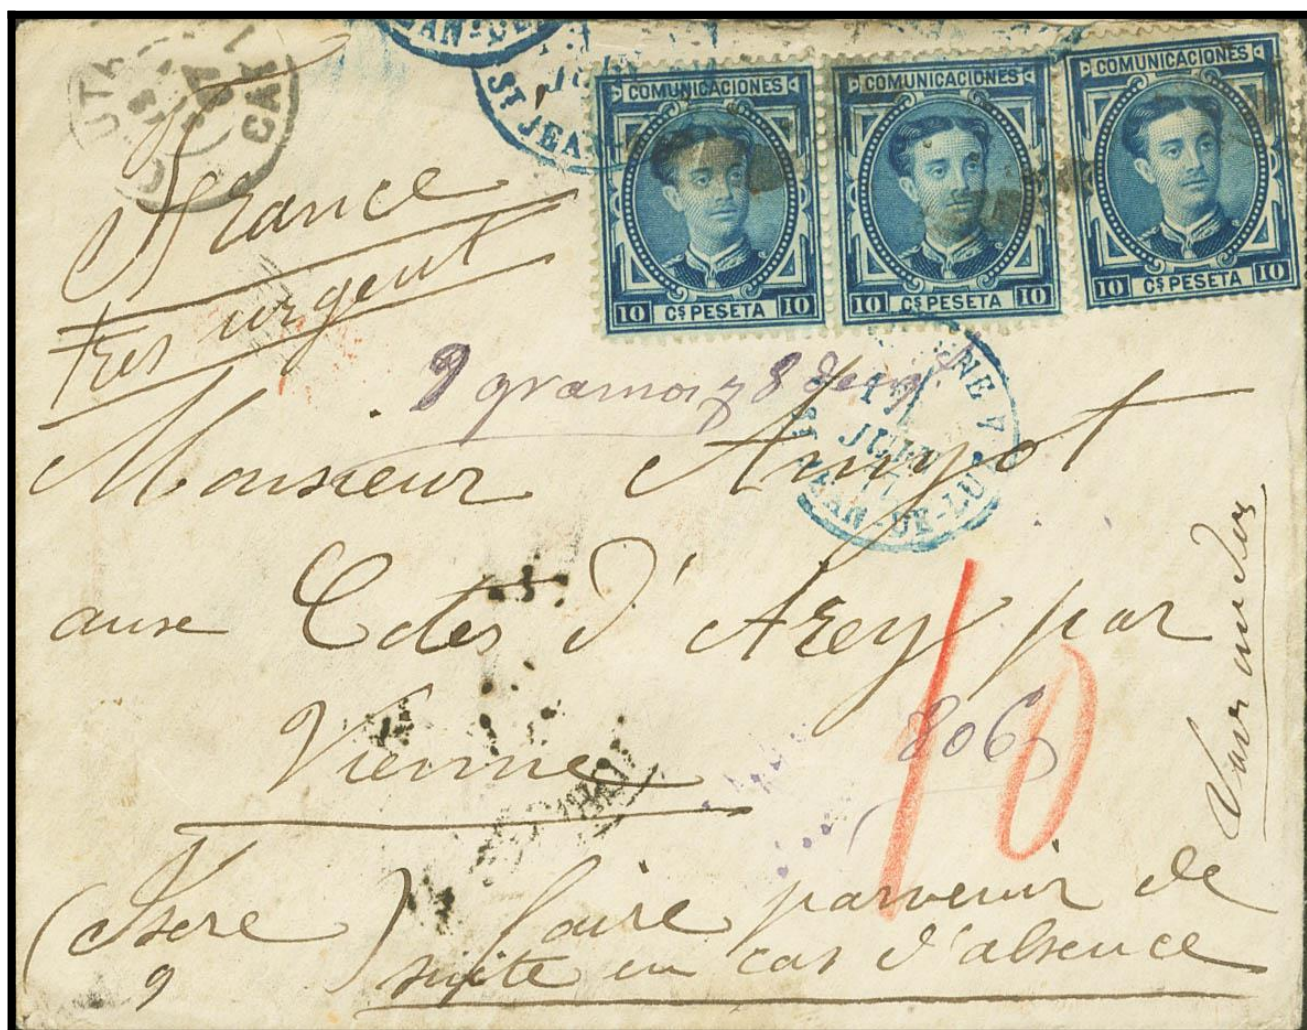 ST JEAN
COMUNICACIONES
10 CS PESETA 10
COMUNICACIONES
10 CS PESETA 10
COMUNICACIONES
10 CS PESETA 10
France
très urgent
9 gramos y 8 decig.
JUIL
Monsieur Amyot
aux Cotes d'Arey par
Vienne
806
10
(Isere)
9
faire parvenir de
suite en cas d'absence